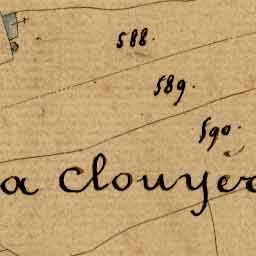 588.
589.
590.
a Clouyer